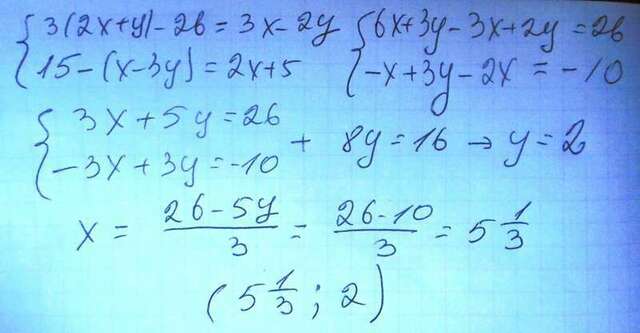 {3(2x+y)-26=3x-2y {6x+3y-3x+2y=26
{15-(x-3y)=2x+5 {-x+3y-2x=-10
{3x+5y=26
{-3x+3y=-10 + 8y=16 → y=2
x = (26-5y)/3 = (26-10)/3 = 5 1/3
(5 1/3 ; 2)